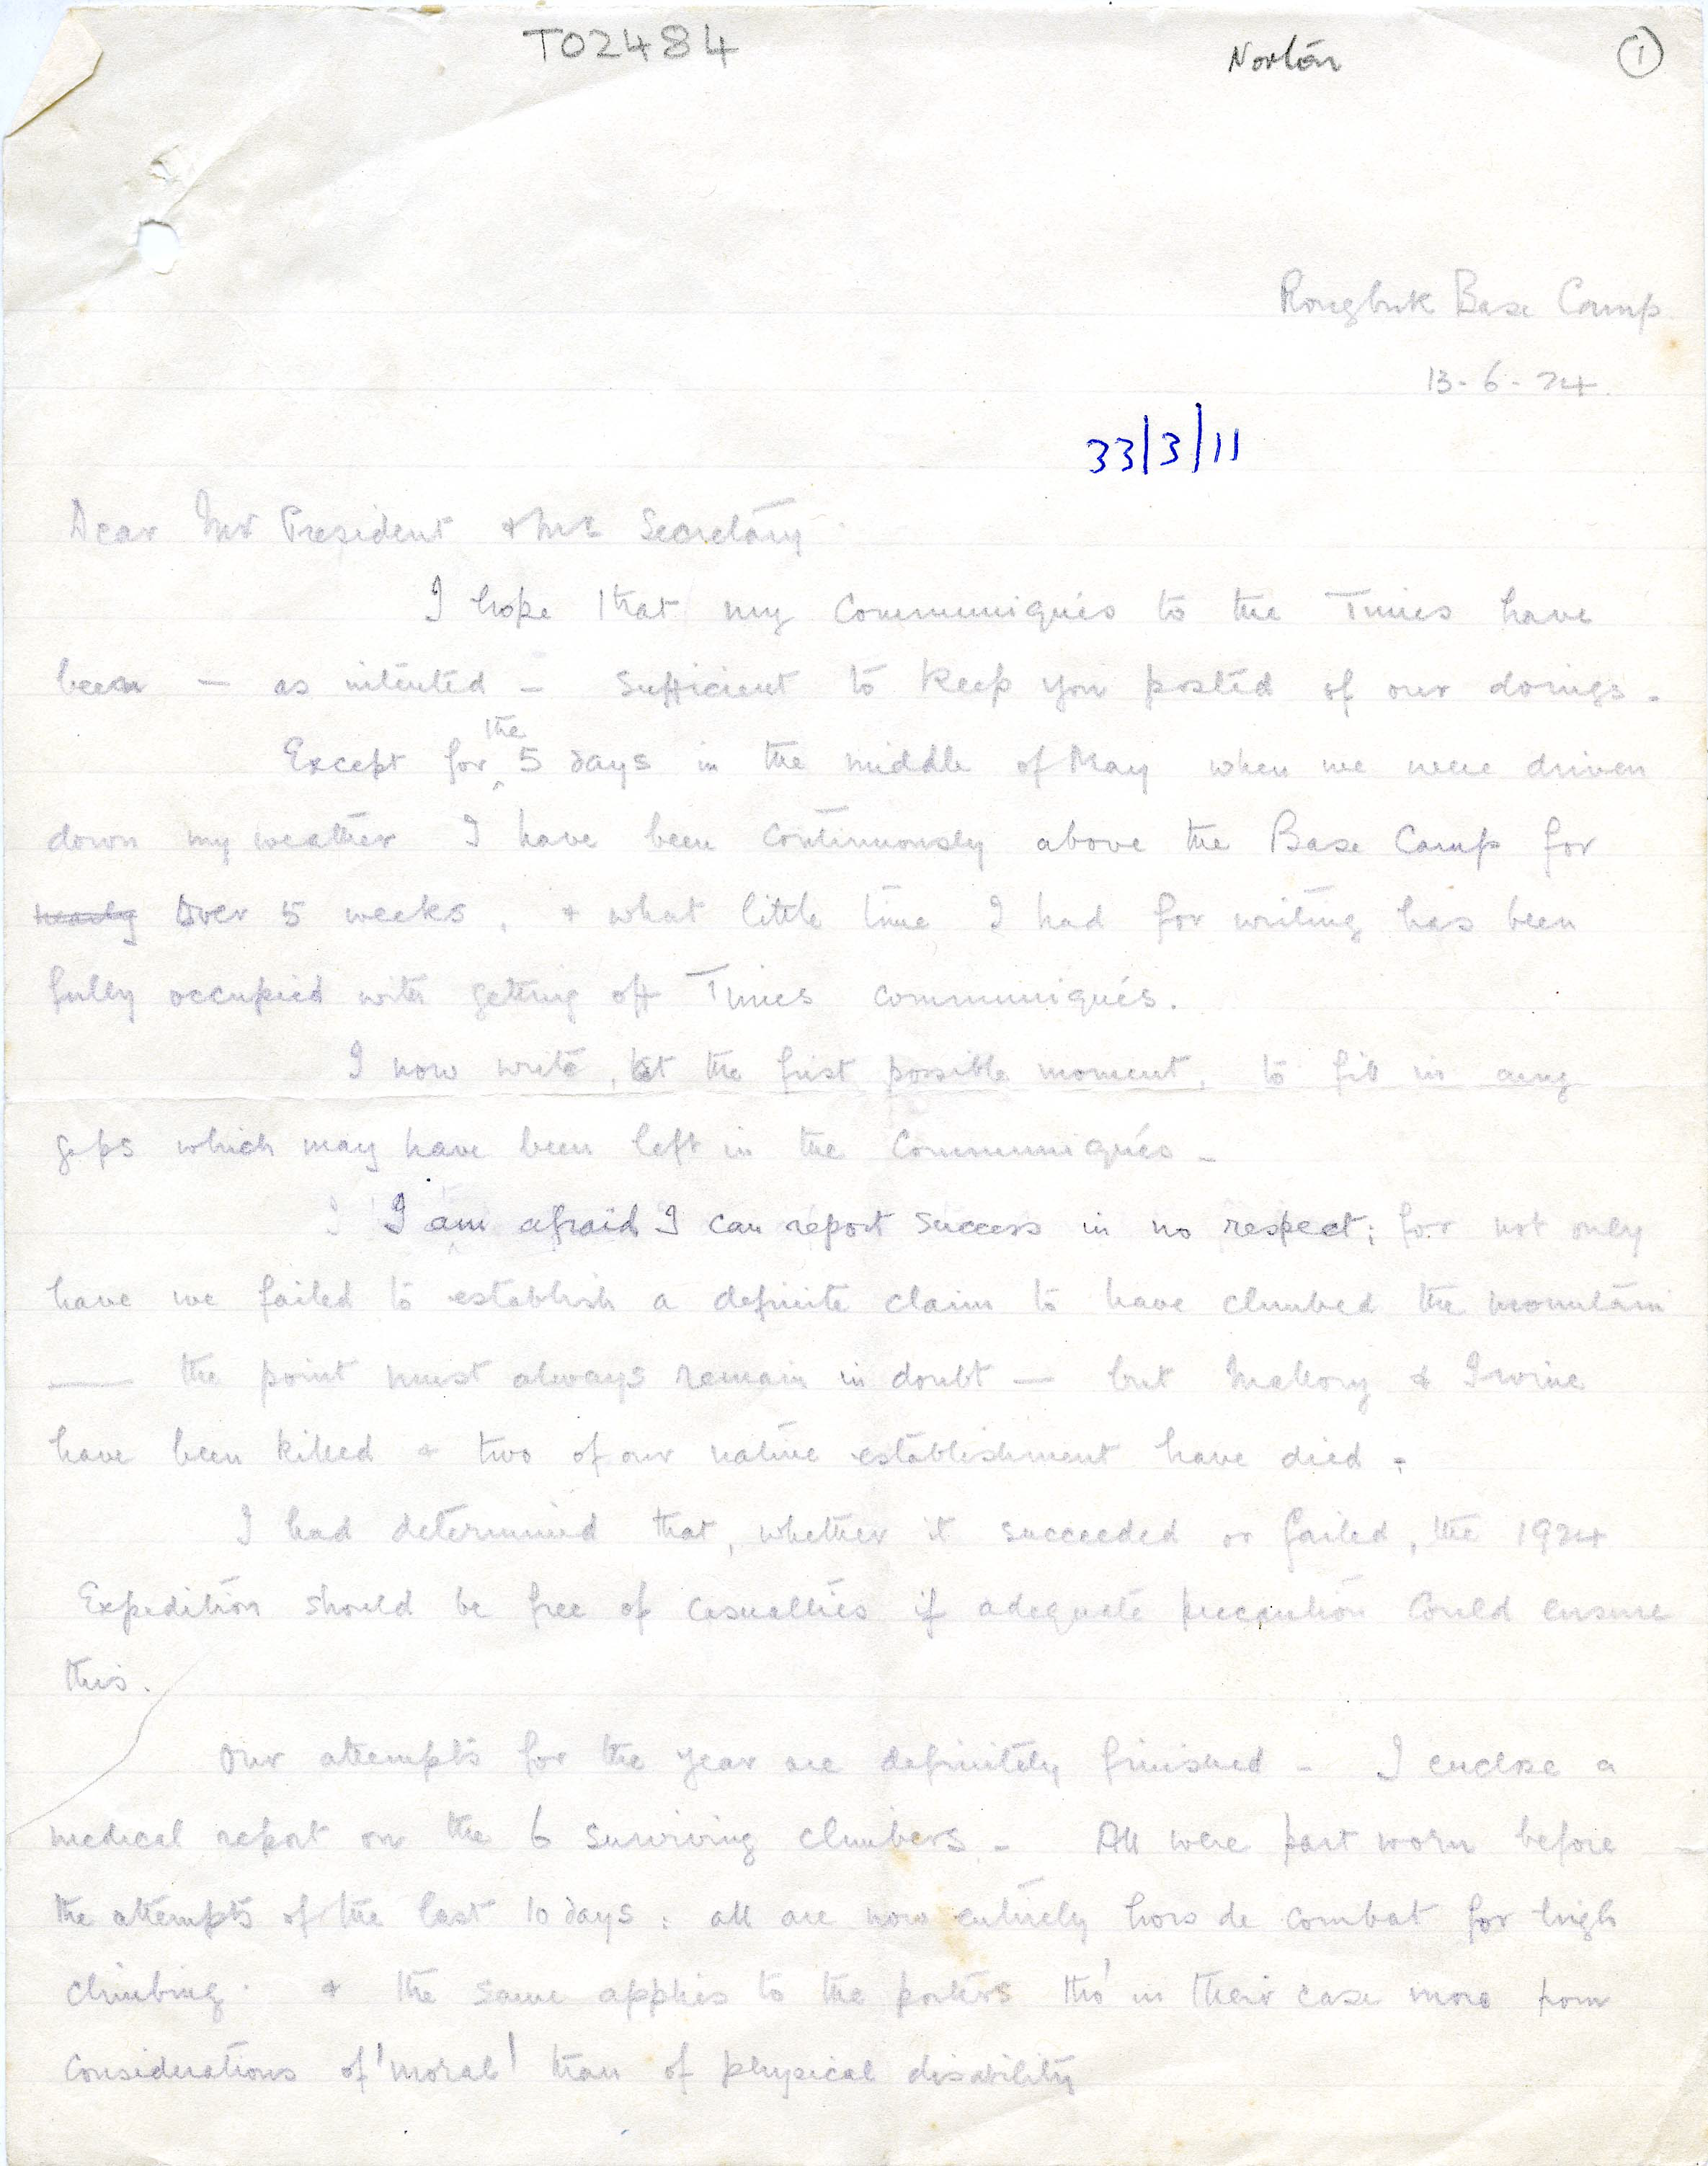 T02484
Norton
1
Rongbuk Base Camp
13-6-24.
33/3/11
Dear Mr President & Mr Secretary
I hope that my Communiqués to the Times have
been — as intented — sufficient to keep you posted of our doings.
the
Except for 5 days in the middle of May when we were driven
down my weather I have been continuously above the Base Camp for
nearly Over 5 weeks, & what little time I had for writing has been
fully occupied with getting off Times communiqués.
I now write, at the first possible moment, to fill in any
gaps which may have been left in the Communiqués -
I am afraid I can report success in no respect; for not only
have we failed to establish a definite claim to have climbed the mountain
— the point must always remain in doubt — but Mallory & Irvine
have been killed & two of our native establishment have died.
I had determined that, whether it succeeded or failed, the 1924
Expedition should be free of casualties if adequate precaution could ensure
this.
Our attempts for the year are definitely finished - I enclose a
medical report on the 6 surviving climbers - All were part worn before -
the attempts of the last 10 days: all are now entirely hors de combat for high
climbing. & the same applies to the porters tho' in their case more from
considerations of 'moral' than of physical disability